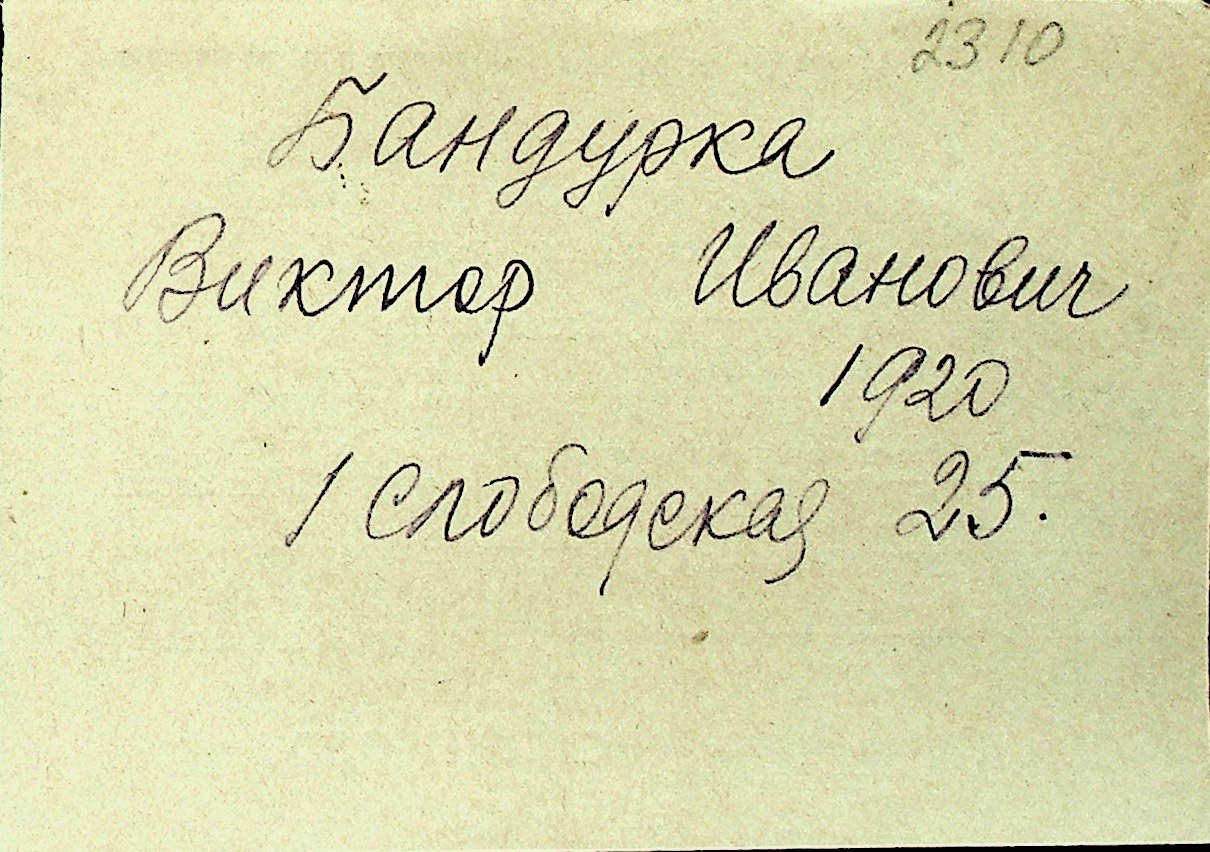 2310
Бандурка
Виктор Иванович
1920
1 Слободская 25.